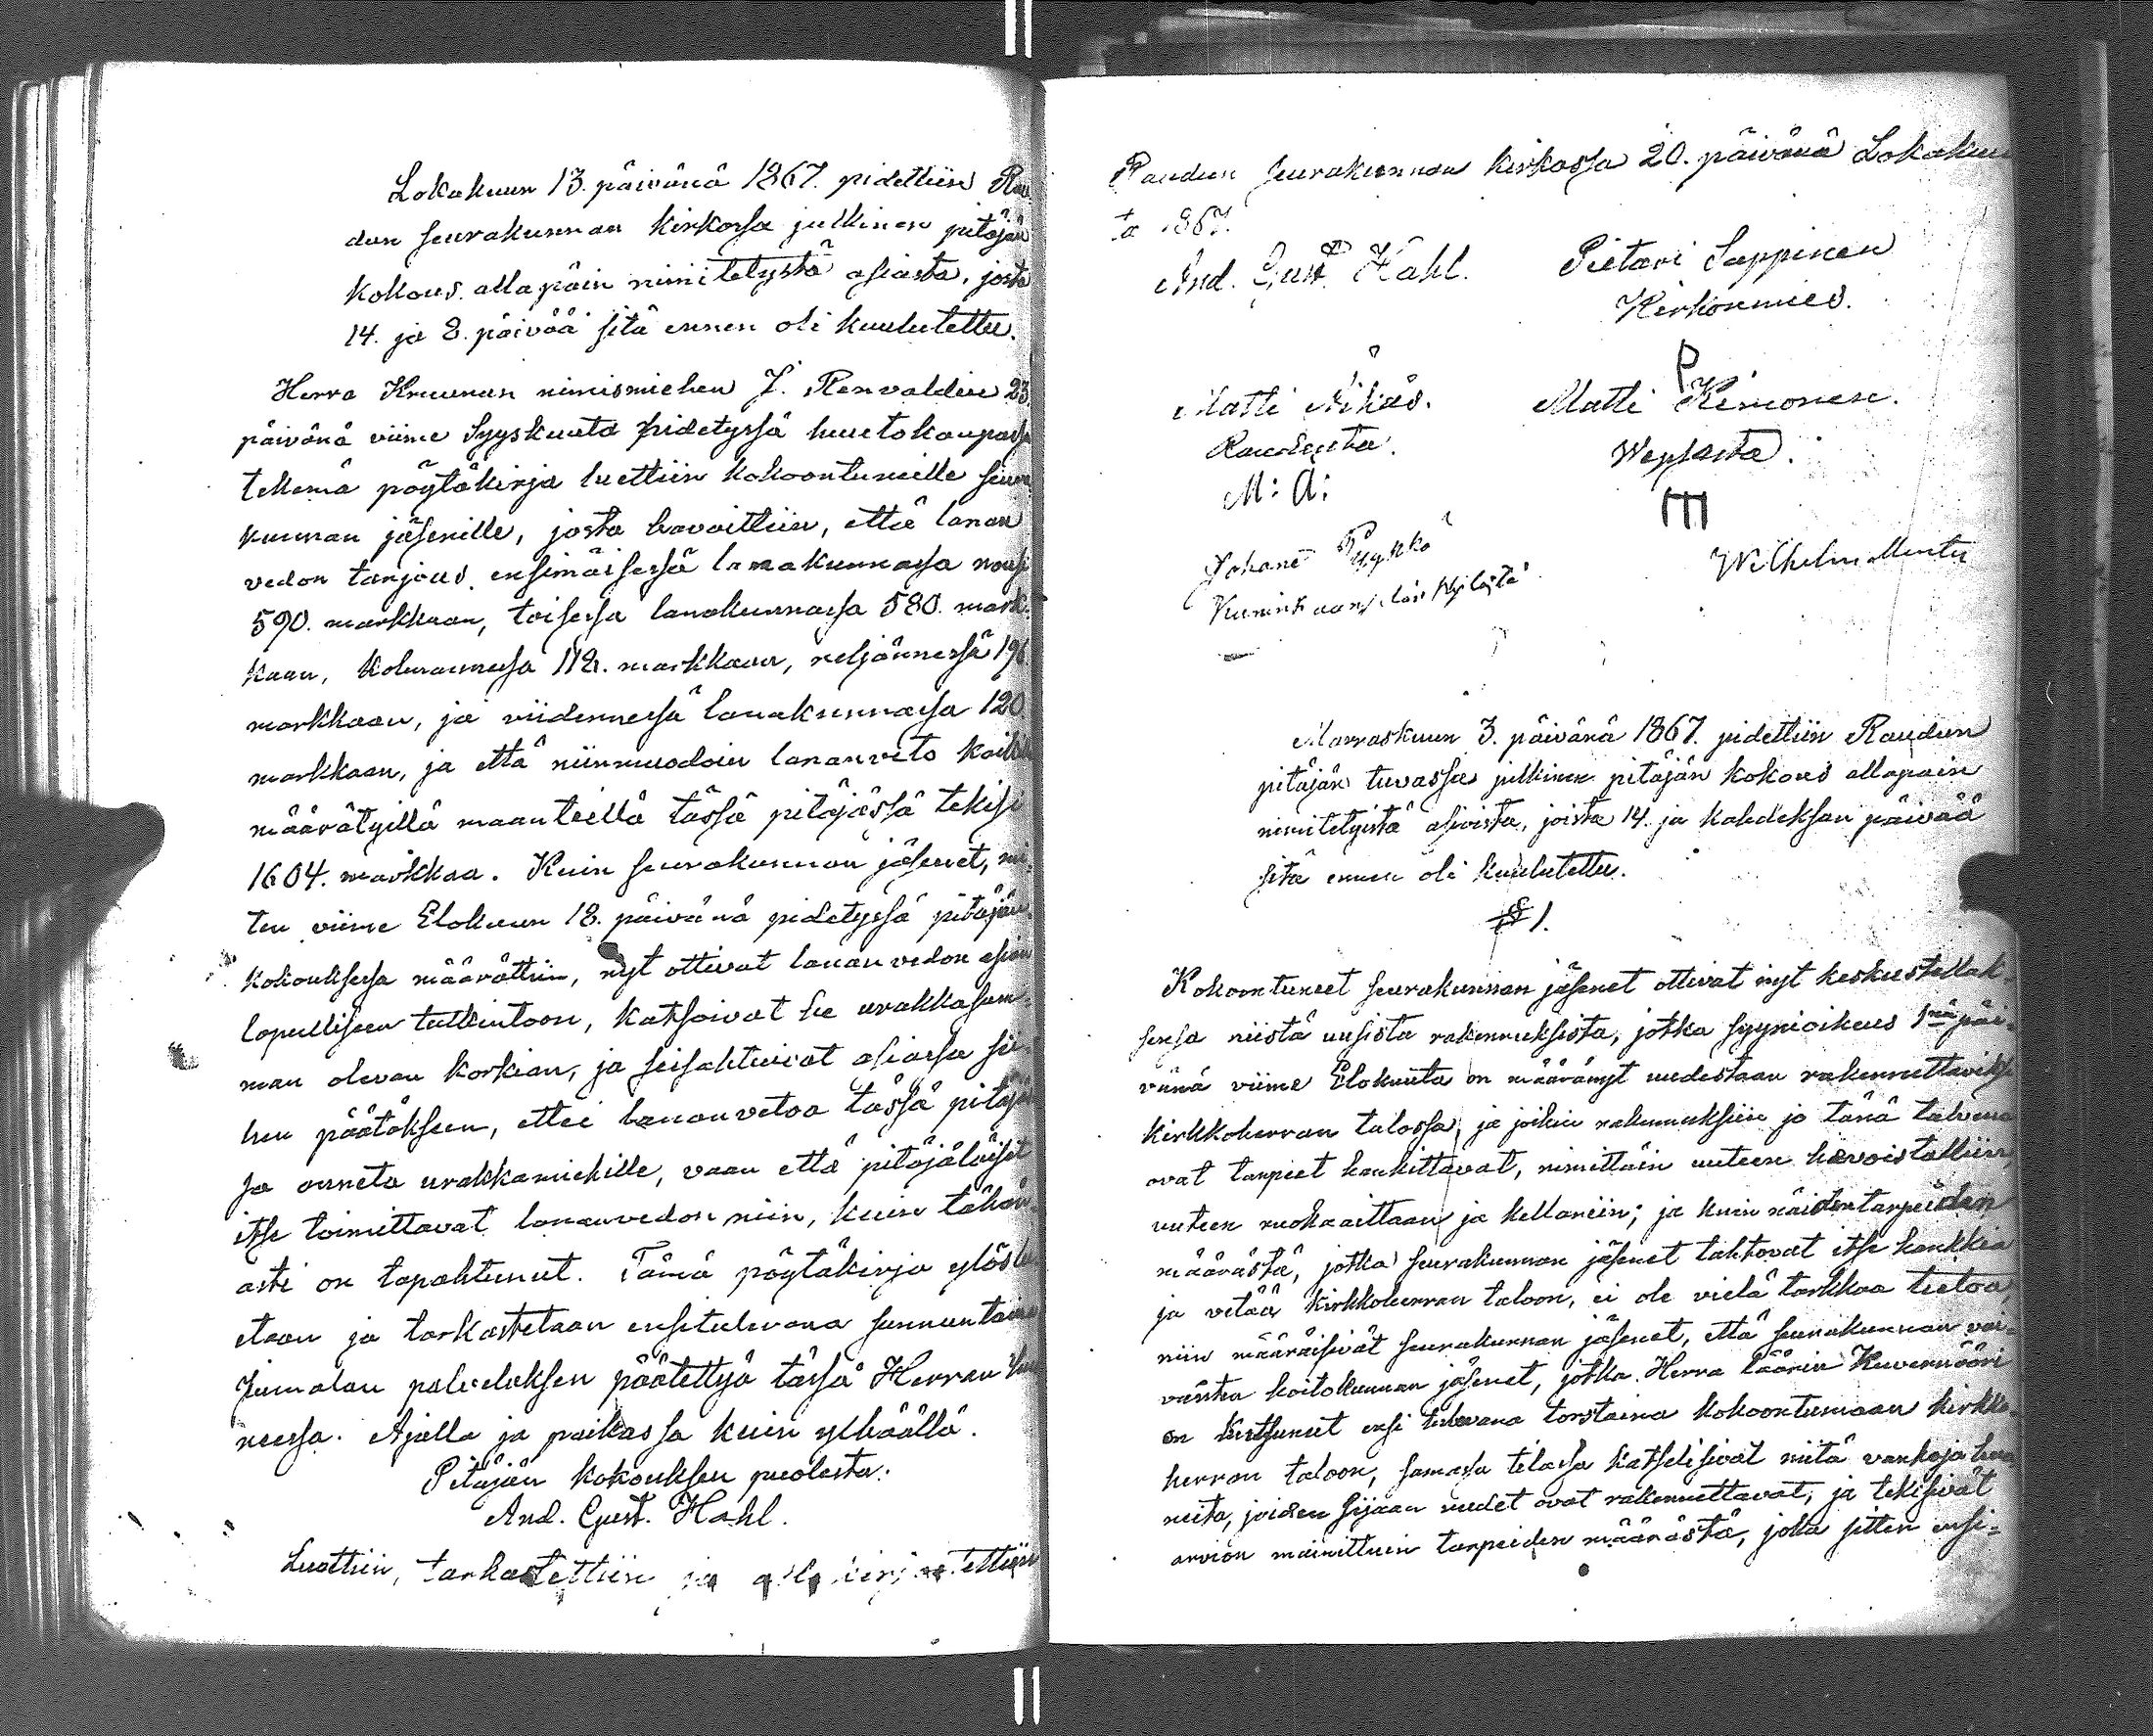 Lokakuun 13. päivänä 1867. pidettiin Rau-
dun seurakunnan kirkossa julkinen pitäjän
kokous allapäin nimitetystä asiasta, josta
14. ja 8. päivää sitä ennen oli kuulutettu.
Herra Kruunun nimismiehen J. Renvaldin 23.
päivänä viime Syyskuuta pidetyssä huutokaupassa
tekemä pöytäkirja luettiin kokoontuneille seura-
kunnan jäsenille, josta havaittiin, että lanan
vedon tarjous ensimäisessä lanakunnassa nousi
590. markkaan, toisessa lanakunnassa 580. mark-
kaan, kolmannessa 118. markkaan, neljännessä 196.
markkaan, ja viidennessä lanakunnassa 120
markkaan, ja että niinmuodoin lananveto kaikilla
määrätyillä maanteillä tässä pitäjässä tekisi
1604. markkaa. Kuin seurakunnan jäsenet, mi-
ten viime Elokuun 18. päivänä pidetyssä pitäjän-
kokouksessa määrättiin, nyt ottivat lanan vedon asian
lopulliseen tutkintoon, katsoivat he urakkasum-
man olevan korkian, ja seisahtuivat asiassa sii-
hen päätökseen, ettei lananvetoa tässä pitäjäs-
sä anneta urakkamiehille, vaan että pitäjäläiset
itse toimittavat lananvedon niin, kuin tähän
asti on tapahtunut. Tämä pöytäkirja ylöslu-
etaan ja tarkastetaan ensitulevana sunnuntaina
Jumalan palveluksen päätettyä tässä Herran huo-
neessa. Ajalla ja paikassa kuin ylhäällä.
Pitäjän kokouksen puolesta:
And. Gust. Hahl.
Luettiin, tarkastettiin ja allekirjoitettiin
Raudun seurakunnan kirkossa 20. päivänä Lokakuu-
ta 1867.
And. Gust. Hahl. Pietari Sappinen
Kirkonmies.
Matti Äikäs. Matti Kimonen.
Raudusta. Wepsasta.
M: Ä:
Johane Pyykkö Wilhelm
Marraskuun 3. päivänä 1867. pidettiin Raudun
pitäjän tuvassa julkinen pitäjän kokous allapäin
nimitetyistä asioista, joista 14. ja kahdeksan päivää
sitä ennen oli kuulutettu.
§ 1.
Kokoontuneet seurakunnan jäsenet ottivat nyt keskustellak-
sensa niistä uusista rakennuksista, jotka syynioikeus 1nä päi-
vänä viime Elokuuta on määrännyt uudestaan rakennettaviksi
kirkkoherran talossa, ja joihin rakennuksiin jo tänä talvena
ovat tarpeet hankittavat, nimittäin uuteen hevoistalliin,
uuteen ruokaaittaan ja kellariin; ja kuin näiden tarpeiden
määrästä, jotka seurakunnan jäsenet tahtovat itse hankkia
ja vetää kirkkoherran taloon, ei ole vielä tarkkaa tietoa,
niin määräisivät seurakunnan jäsenet, että seurakunnan vai-
vaisten hoitokunnan jäsenet, jotka Herra Läänin Kuvernööri
on kutsunut ensi tulevana torstaina kokoontumaan kirkko-
herran taloon, samassa tilassa katselisivat niitä vanhoja huo-
neita, joiden sijaan uudet ovat rakennettavat, ja tekisivät
arvion mainittuin tarpeiden määrästä, jotka sitten ensi-